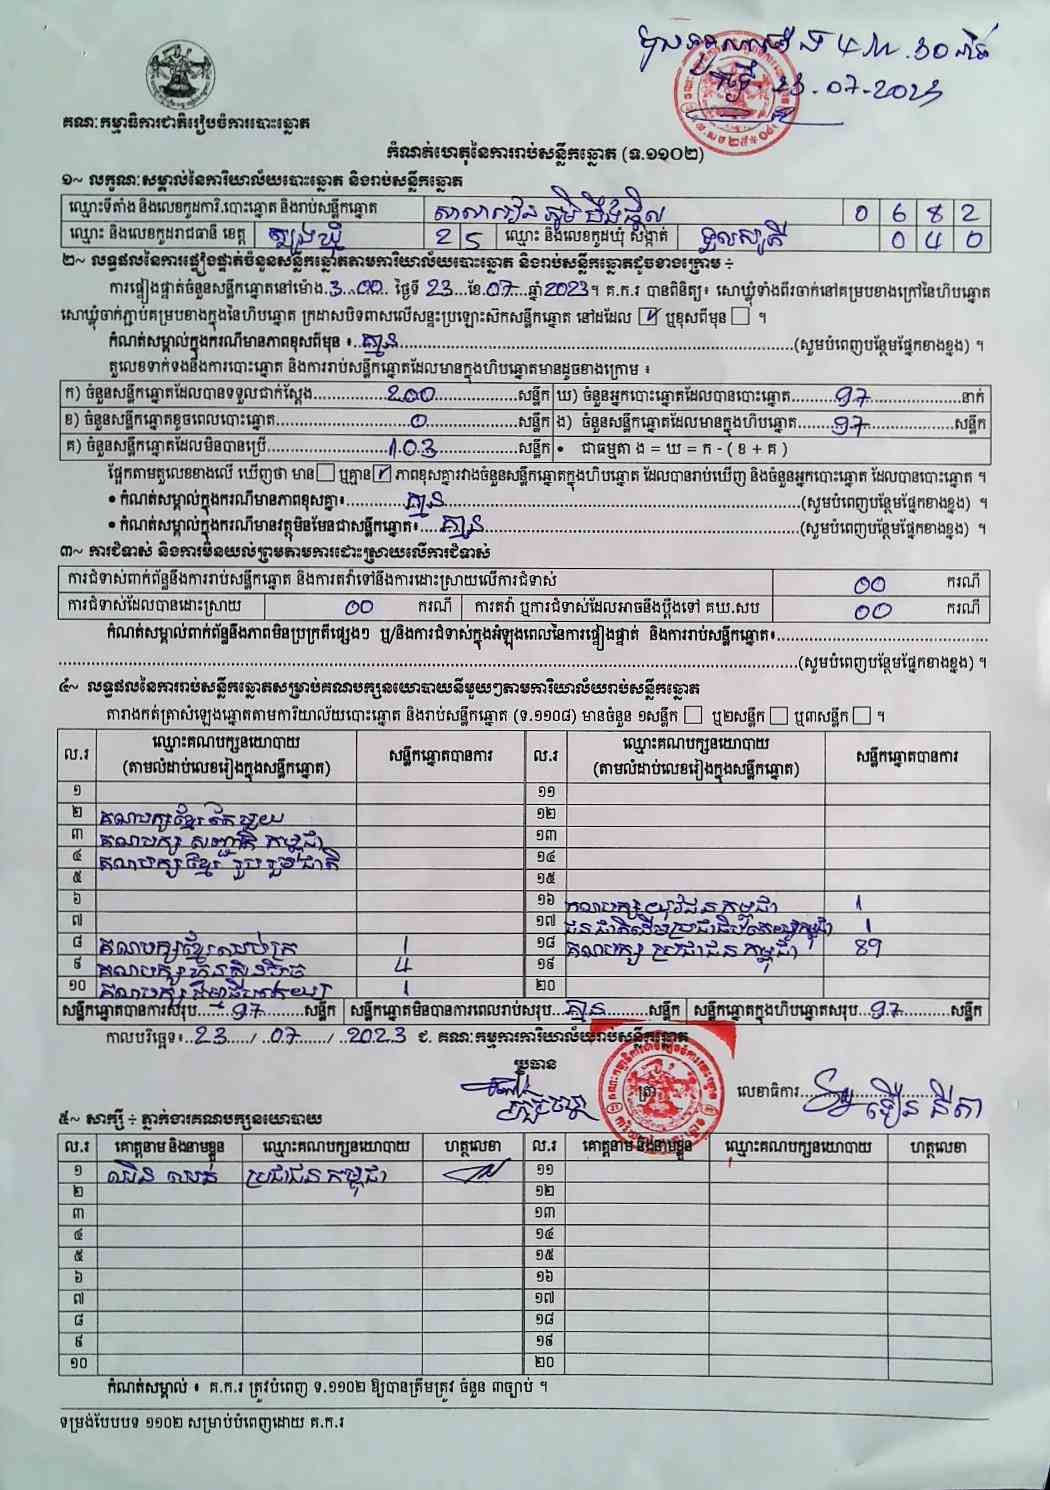 ម៉ោង ៤ និង ៣០ នាទី
23.07-2023
គណៈកម្មាធិការជាតិរៀបចំការបោះឆ្នោត
កំណត់ហេតុនៃការរាប់សន្លឹកឆ្នោត (ទ.១១០២)
១~ លក្ខណៈសម្គាល់នៃការិយាល័យបោះឆ្នោត និងរាប់សន្លឹកឆ្នោត
ឈ្មោះទីតាំង និងលេខកូដការិ.បោះឆ្នោត និងរាប់សន្លឹកឆ្នោត សាលារៀន ភូមិ 0 6 8 2
ឈ្មោះ និងលេខកូដរាជធានី ខេត្ត ត្បូងឃ្មុំ 2 5 ឈ្មោះ និងលេខកូដឃុំ សង្កាត់ ទួលសូភី 0 4 0
២~ លទ្ធផលនៃការផ្ទៀងផ្ទាត់ចំនួនសន្លឹកឆ្នោតតាមការិយាល័យបោះឆ្នោត និងរាប់សន្លឹកឆ្នោតដូចខាងក្រោម ÷
ការផ្ទៀងផ្ទាត់ចំនួនសន្លឹកឆ្នោតនៅម៉ោង.3..00.. ថ្ងៃទី 23...ខែ.07....ឆ្នាំ2023។ គ.ក.រ បានពិនិត្យ៖ សោឃ្លុំទាំងពីរចាក់នៅគម្របខាងក្រៅនៃហិបឆ្នោត
សោឃ្លុំចាក់ភ្ជាប់គម្របខាងក្នុងនៃហិបឆ្នោត ក្រដាសបិទពាសលើសន្ទះប្រឡោះស៊កសន្លឹកឆ្នោត នៅដដែល ☑ ឬខុសពីមុន ☐ ។
កំណត់សម្គាល់ក្នុងករណីមានភាពខុសពីមុន ៖..គ្មាន......(សូមបំពេញបន្ថែមផ្នែកខាងខ្នង) ។
តួលេខទាក់ទងនឹងការបោះឆ្នោត និងការរាប់សន្លឹកឆ្នោតដែលមានក្នុងហិបឆ្នោតមានដូចខាងក្រោម ៖
ក) ចំនួនសន្លឹកឆ្នោតដែលបានទទួលជាក់ស្តែង......200......សន្លឹក ឃ) ចំនួនអ្នកបោះឆ្នោតដែលបានបោះឆ្នោត......97......នាក់
ខ) ចំនួនសន្លឹកឆ្នោតខូចពេលបោះឆ្នោត......0......សន្លឹក ង) ចំនួនសន្លឹកឆ្នោតដែលមានក្នុងហិបឆ្នោត......97......សន្លឹក
គ) ចំនួនសន្លឹកឆ្នោតដែលមិនបានប្រើ......103......សន្លឹក • ជាធម្មតា ង = ឃ = ក - ( ខ + គ )
ផ្អែកតាមតួលេខខាងលើ ឃើញថា មាន ☐ ឬគ្មាន ☑ ភាពខុសគ្នារវាងចំនួនសន្លឹកឆ្នោតក្នុងហិបឆ្នោត ដែលបានរាប់ឃើញ និងចំនួនអ្នកបោះឆ្នោត ដែលបានបោះឆ្នោត ។
• កំណត់សម្គាល់ក្នុងករណីមានភាពខុសគ្នា៖......គ្មាន......(សូមបំពេញបន្ថែមផ្នែកខាងខ្នង) ។
• កំណត់សម្គាល់ក្នុងករណីមានវត្ថុមិនមែនជាសន្លឹកឆ្នោត៖....គ្មាន......(សូមបំពេញបន្ថែមផ្នែកខាងខ្នង) ។
៣~ ការជំទាស់ និងការមិនយល់ព្រមតាមការដោះស្រាយលើការជំទាស់
ការជំទាស់ពាក់ព័ន្ធនឹងការរាប់សន្លឹកឆ្នោត និងការតវ៉ាទៅនឹងការដោះស្រាយលើការជំទាស់ 00 ករណី
ការជំទាស់ដែលបានដោះស្រាយ 00 ករណី ការតវ៉ា ឬការជំទាស់ដែលអាចនឹងប្តឹងទៅ គឃ.សប 00 ករណី
កំណត់សម្គាល់ពាក់ព័ន្ធនឹងភាពមិនប្រក្រតីផ្សេងៗ ឬ/និងការជំទាស់ក្នុងអំឡុងពេលនៃការផ្ទៀងផ្ទាត់ និងការរាប់សន្លឹកឆ្នោត៖......
......(សូមបំពេញបន្ថែមផ្នែកខាងខ្នង) ។
៤~ លទ្ធផលនៃការរាប់សន្លឹកឆ្នោតសម្រាប់គណបក្សនយោបាយនីមួយៗតាមការិយាល័យរាប់សន្លឹកឆ្នោត
តារាងកត់ត្រាសំឡេងឆ្នោតតាមការិយាល័យបោះឆ្នោត និងរាប់សន្លឹកឆ្នោត (ទ.១១០៨) មានចំនួន ១សន្លឹក ☐ ឬ២សន្លឹក ☐ ឬ៣សន្លឹក ☐ ។
ល.រ ឈ្មោះគណបក្សនយោបាយ (តាមលំដាប់លេខរៀងក្នុងសន្លឹកឆ្នោត) សន្លឹកឆ្នោតបានការ ល.រ ឈ្មោះគណបក្សនយោបាយ (តាមលំដាប់លេខរៀងក្នុងសន្លឹកឆ្នោត) សន្លឹកឆ្នោតបានការ
១ ១១
២ គណបក្សខ្មែរតែមួយ ១២
៣ គណបក្ស សញ្ជាតិ កម្ពុជា ១៣
៤ គណបក្សខ្មែរ រួបរួមជាតិ ១៤
៥ ១៥
៦ ១៦ គណបក្ស យុវជន កម្ពុជា 1
៧ ១៧ ជនជាតិដើមប្រជាធិបតេយ្យកម្ពុជា 1
៨ គណបក្សខ្មែរឈប់ក្រ 1 ១៨ គណបក្ស ប្រជាជន កម្ពុជា 89
៩ គណបក្ស ហ៊្វុនស៊ិនប៉ិច 4 ១៩
១០ គណបក្ស ធម្មាធិបតេយ្យ 1 ២០
សន្លឹកឆ្នោតបានការសរុប......97......សន្លឹក សន្លឹកឆ្នោតមិនបានការពេលរាប់សរុប..គ្មាន......សន្លឹក សន្លឹកឆ្នោតក្នុងហិបឆ្នោតសរុប...97......សន្លឹក
កាលបរិច្ឆេទ៖..23...../..07....../..2023 ជ. គណៈកម្មការការិយាល័យរាប់សន្លឹកឆ្នោត
ប្រធាន
ត្រា លេខាធិការ......
៥~ សាក្សី ÷ ភ្នាក់ងារគណបក្សនយោបាយ
ល.រ គោត្តនាម និងនាមខ្លួន ឈ្មោះគណបក្សនយោបាយ ហត្ថលេខា ល.រ គោត្តនាម និងនាមខ្លួន ឈ្មោះគណបក្សនយោបាយ ហត្ថលេខា
១ ប្រជាជន កម្ពុជា ១១
២ ១២
៣ ១៣
៤ ១៤
៥ ១៥
៦ ១៦
៧ ១៧
៨ ១៨
៩ ១៩
១០ ២០
កំណត់សម្គាល់ ៖ គ.ក.រ ត្រូវបំពេញ ទ.១១០២ ឱ្យបានត្រឹមត្រូវ ចំនួន ៣ច្បាប់ ។
ទម្រង់បែបបទ ១១០២ សម្រាប់បំពេញដោយ គ.ក.រ